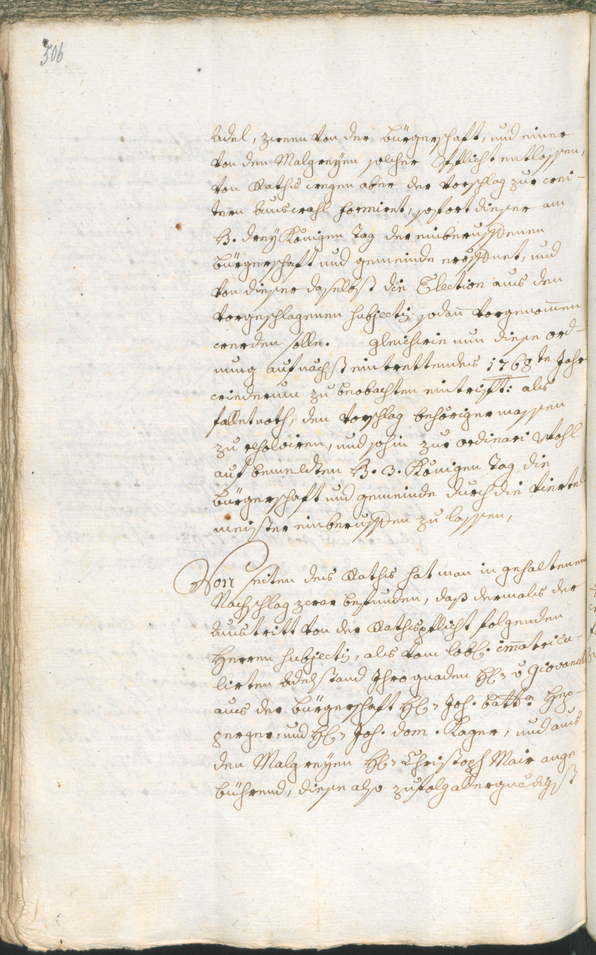 306
Adel, zween von der Bürgerschaft, und einer
von den Malgreyen solcher Pflicht entlassen,
von Raths wegen aber der Vorschlag zur wei¬
tern Auswahl formiret, sofort dieser am
H. drey Königen Tag der einberuffenen
Bürgerschaft und gemeinde eröffnet, und
von dieser daselbst die Election aus den
vorgeschlagenen Subjectis sodan vorgenommen
werden solle. gleichwie nun diese ord¬
nung auf nächst eintrettendes 1768te Jahr
wiederum zu beobachten eintrifft: als
fallet noth, den Vorschlag behörigermassen
zu resolviren, und sohin zur ordinari Wahl
auf bemeldten H. 3. Königen Tag die
Bürgerschaft und gemeinde durch die Viertl
meister einberuffen zu lassen,
Von seiten des Raths hat man in gehaltenen
Nachschlag zwar befunden, daß dermalis der
Austritt von der Rathspflicht folgenden
Herren Subjectis, als vom löbl. immatricu¬
lirten Adelstand Ihro gnaden Hl. v Giovanelli
aus der Bürgerschaft Hl. Joh. Batta Hep¬
perger, und Hl. Joh. Dom. Kager, und aus
den Malgreyen Hl. Christoph Mair ange
bührend, diese also zufolg allergnädigst